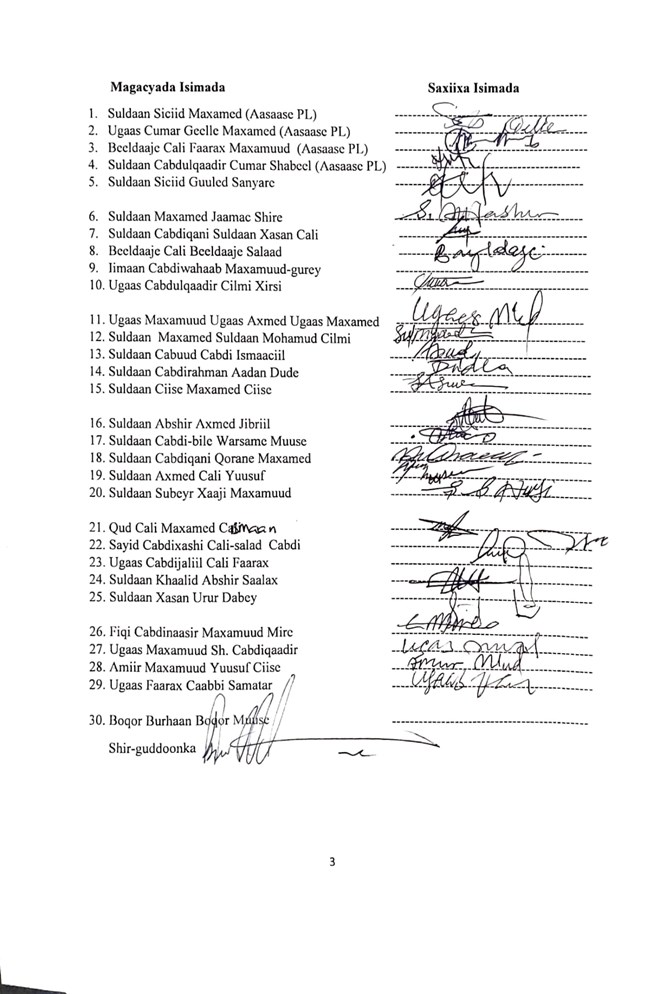 Magacyada Isimada Saxiixa Isimada
1. Suldaan Siciid Maxamed (Aasaase PL)
2. Ugaas Cumar Geelle Maxamed (Aasaase PL)
3. Beeldaaje Cali Faarax Maxamuud (Aasaase PL)
4. Suldaan Cabdulqaadir Cumar Shabeel (Aasaase PL)
5. Suldaan Siciid Guuled Sanyare
6. Suldaan Maxamed Jaamac Shire
7. Suldaan Cabdiqani Suldaan Xasan Cali
8. Beeldaaje Cali Beeldaaje Salaad
9. Iimaan Cabdiwahaab Maxamuud-gurey
10. Ugaas Cabdulqaadir Cilmi Xirsi
11. Ugaas Maxamuud Ugaas Axmed Ugaas Maxamed Ugaas
12. Suldaan Maxamed Suldaan Mohamud Cilmi
13. Suldaan Cabuud Cabdi Ismaaciil
14. Suldaan Cabdirahman Aadan Dude
15. Suldaan Ciise Maxamed Ciise
16. Suldaan Abshir Axmed Jibriil
17. Suldaan Cabdi-bile Warsame Muuse
18. Suldaan Cabdiqani Qorane Maxamed
19. Suldaan Axmed Cali Yuusuf
20. Suldaan Subeyr Xaaji Maxamuud
21. Qud Cali Maxamed
22. Sayid Cabdixashi Cali-salad Cabdi
23. Ugaas Cabdijaliil Cali Faarax
24. Suldaan Khaalid Abshir Saalax
25. Suldaan Xasan Urur Dabey
26. Fiqi Cabdinaasir Maxamuud Mire
27. Ugaas Maxamuud Sh. Cabdiqaadir
28. Amiir Maxamuud Yuusuf Ciise
29. Ugaas Faarax Caabbi Samatar
30. Boqor Burhaan Boqor Muuse
Shir-guddoonka
3